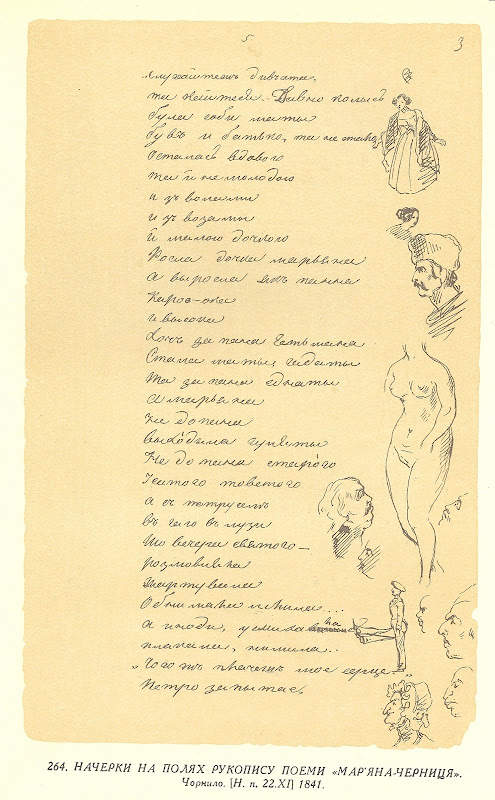 5
3
слухайтежъ дивчата,
та кайтеся. Давно колысь
була соби маты
бувъ и батько, та не стало
Осталась вдовою
та й не молодою
и зъ волами
и зъ возами
й малою дочкою
Росла дочка марьяна
а выросла якъ панна
Кароока
и высока
Хочъ за пана Гетьмана
Стала маты гадаты
Та за пана еднаты
а марьяна
не до пана
выходыла гуляты
Не до пана старого
Усатого товстого
а съ петрусемъ
въ гаю въ лузи
Що вечора святого—
розмовляла
жартувала
Обнимала млила...
а иноди,
плакала, нимила..
„Чогожъ плачешь мое серце—"
Петро запытае.
264. НАЧЕРКИ НА ПОЛЯХ РУКОПИСУ ПОЕМИ «МАР'ЯНА-ЧЕРНИЦЯ».
Чорнило. [Н. п. 22.XI] 1841.